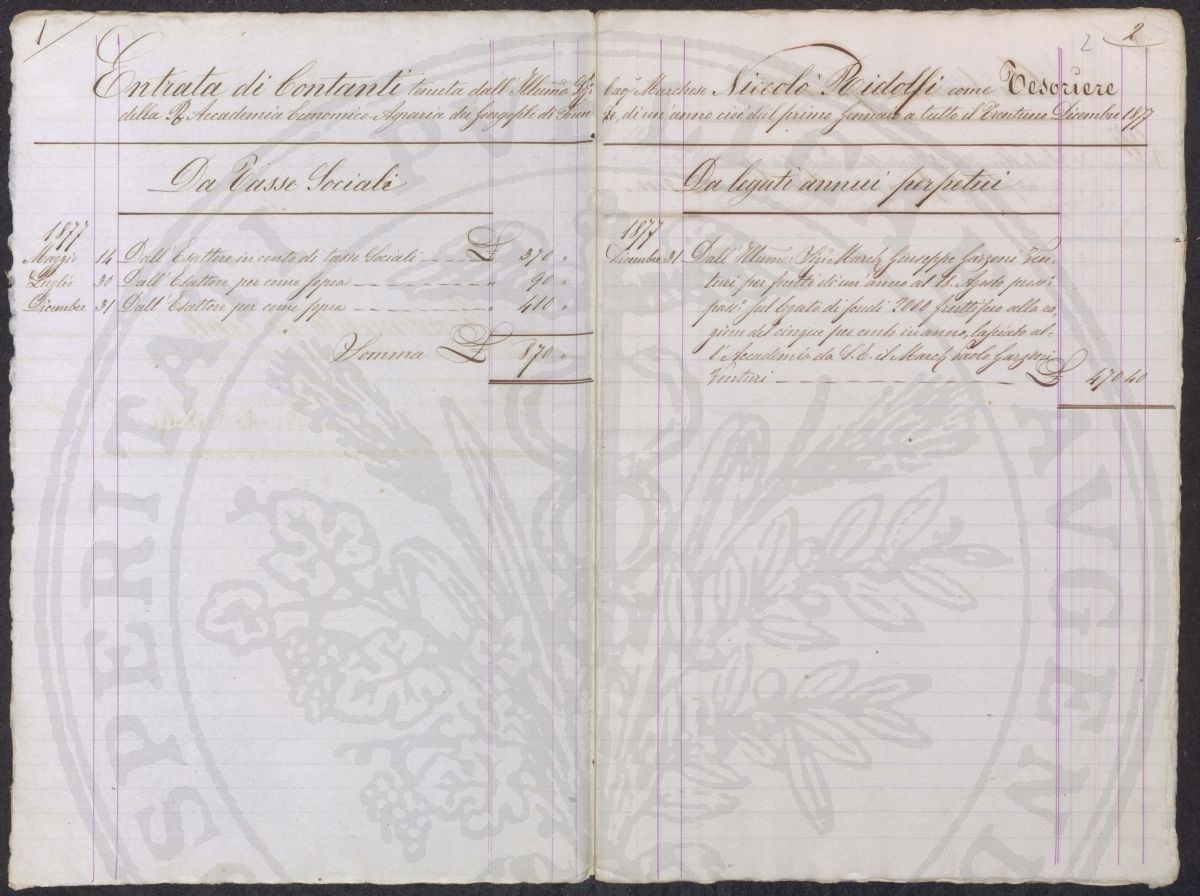 1
2 2
Entrata di Contanti tenuta dall' Illumo Sigr Cavr Marchese Niccolò Ridolfi come Tesoriere
della R. Accademia Economico-Agraria dei Georgofili di Firenze, di un'anno cioè dal primo Gennaio a tutto il Trentuno Dicembre 1877
Da Tasse Sociali
1877
Maggio 14 Dall' Esattore in conto di tasse Sociali £ 370 "
Luglio 30 Dall' Esattore per come sopra " 90 "
Dicembre 31 Dall' Esattore per come sopra " 410 "
Somma £ 870 "
Da legati annui perpetui
1877
Dicembre 31 Dall' Illumo Sigr March Giuseppe Garzoni Ven-
turi per frutti di un anno al 18. Agosto pross.
pass. sul legato di scudi 2000 fruttifero alla ra-
gione del cinque per cento in anno, lasciato al-
l' Accademia da S. E. il March Paolo Garzoni
Venturi £ 470 40
SPERITATI PUBLICAE AUGENDA